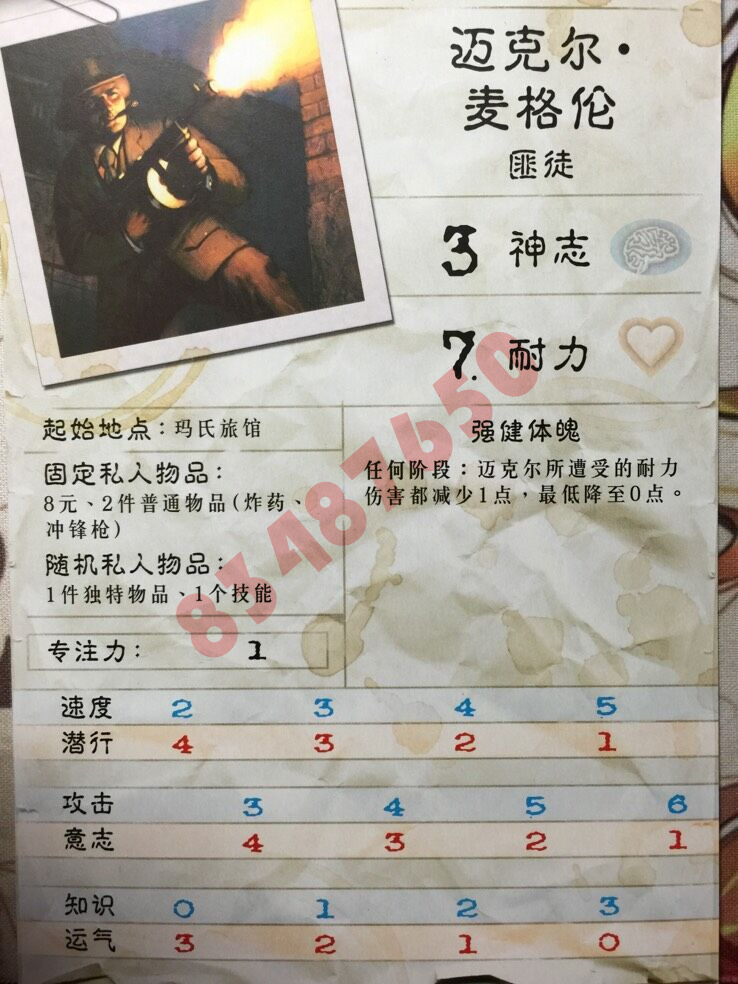 迈克尔·
麦格伦
匪徒
3 神志
7 耐力
起始地点：玛氏旅馆
固定私人物品：
8元、2件普通物品(炸药、
冲锋枪)
随机私人物品：
1件独特物品、1个技能
强健体魄
任何阶段：迈克尔所遭受的耐力
伤害都减少1点，最低降至0点。
专注力： 1
速度 2 3 4 5
潜行 4 3 2 1
攻击 3 4 5 6
意志 4 3 2 1
知识 0 1 2 3
运气 3 2 1 0
83487650